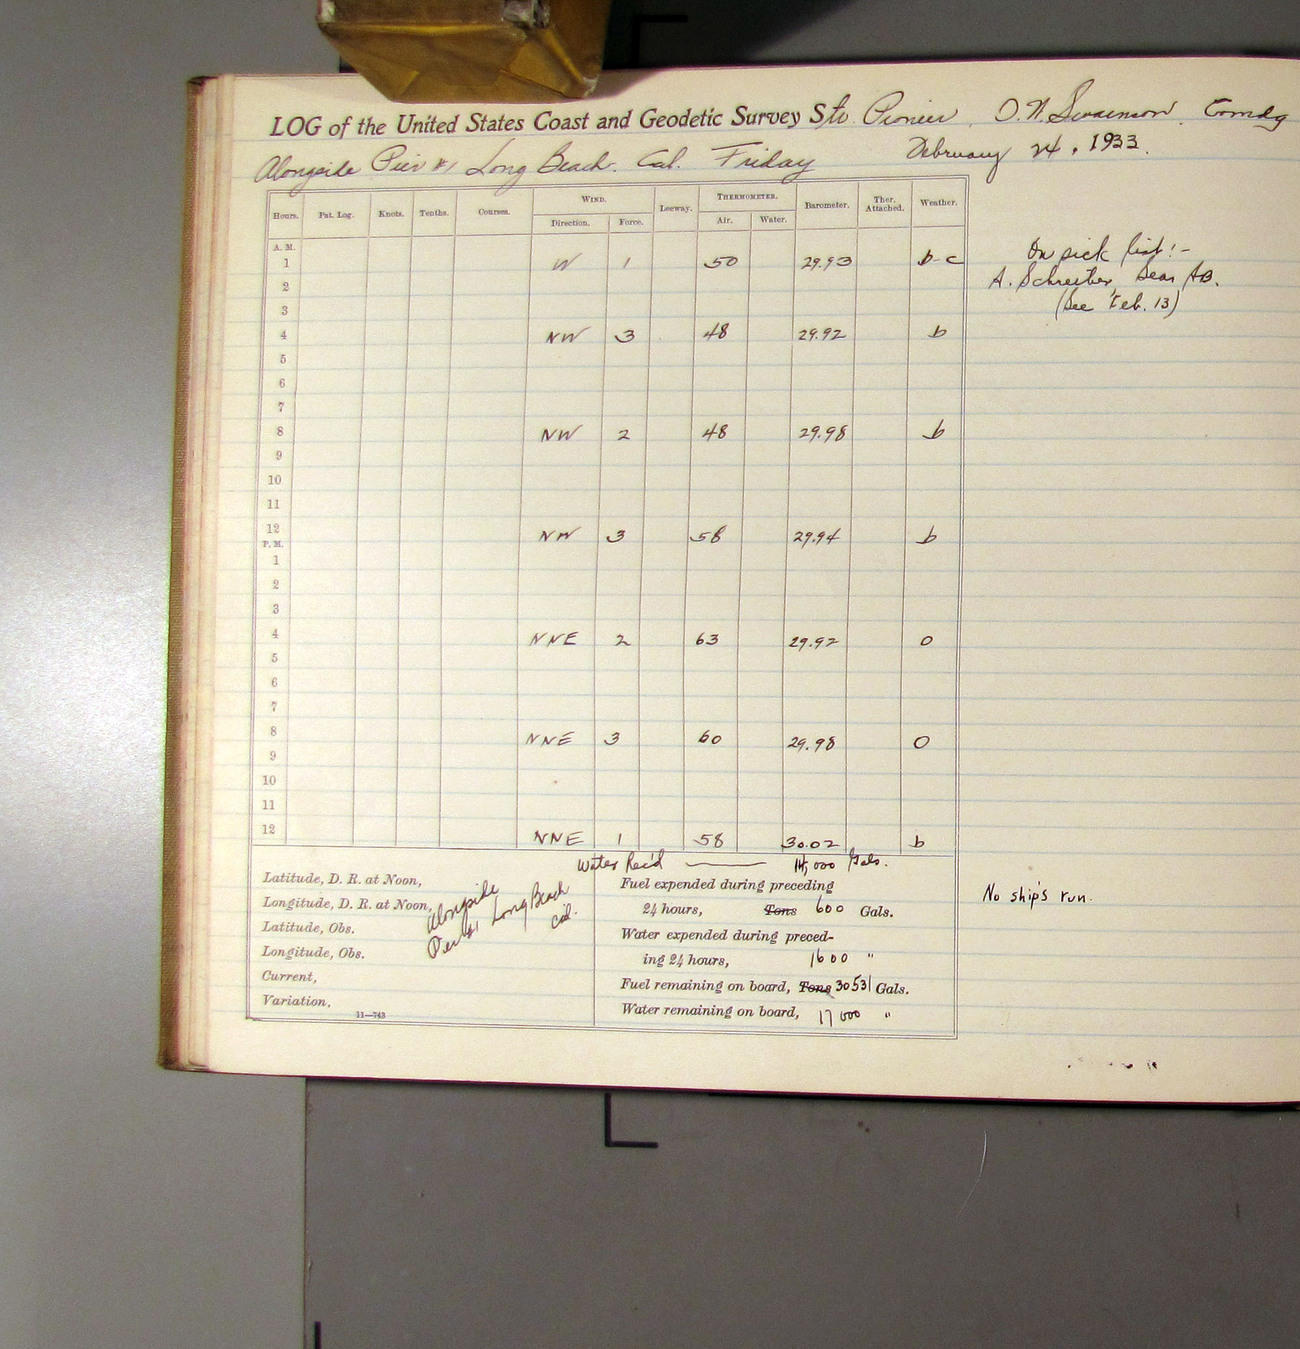 LOG of the United States Coast and Geodetic Survey Str. Pioneer, O.W. Swainson, Comdg
Alongside Pier #1 Long Beach. Cal. Friday February 24, 1933.
Hours. Pat. Log. Knots. Tenths. Courses. WIND. Leeway. THERMOMETER. Barometer. Ther. Attached. Weather.
Direction. Force. Air. Water.
A. M.
1 W 1 50 29.93 b-c
On sick list:-
2
A. Schreiber, Sean AB.
3
(See Feb. 13)
4 NW 3 48 29.92 b
5
6
7
8 NW 2 48 29.98 b
9
10
11
12 NW 3 58 29.94 b
P. M.
1
2
3
4 NNE 2 63 29.92 o
5
6
7
8 NNE 3 60 29.98 o
9
10
11
12 NNE 1 58 30.02 b
Water Rec'd 14,000 Gals.
Latitude, D. R. at Noon,
Longitude, D. R. at Noon,
Latitude, Obs.
Longitude, Obs.
Current,
Variation,
11—743
Alongside
Pier #1 Long Beach
Cal.
Fuel expended during preceding
24 hours, Tons 600 Gals.
Water expended during preced-
ing 24 hours, 1600 "
Fuel remaining on board, Tons 30531 Gals.
Water remaining on board, 17000 "
No ship's run.